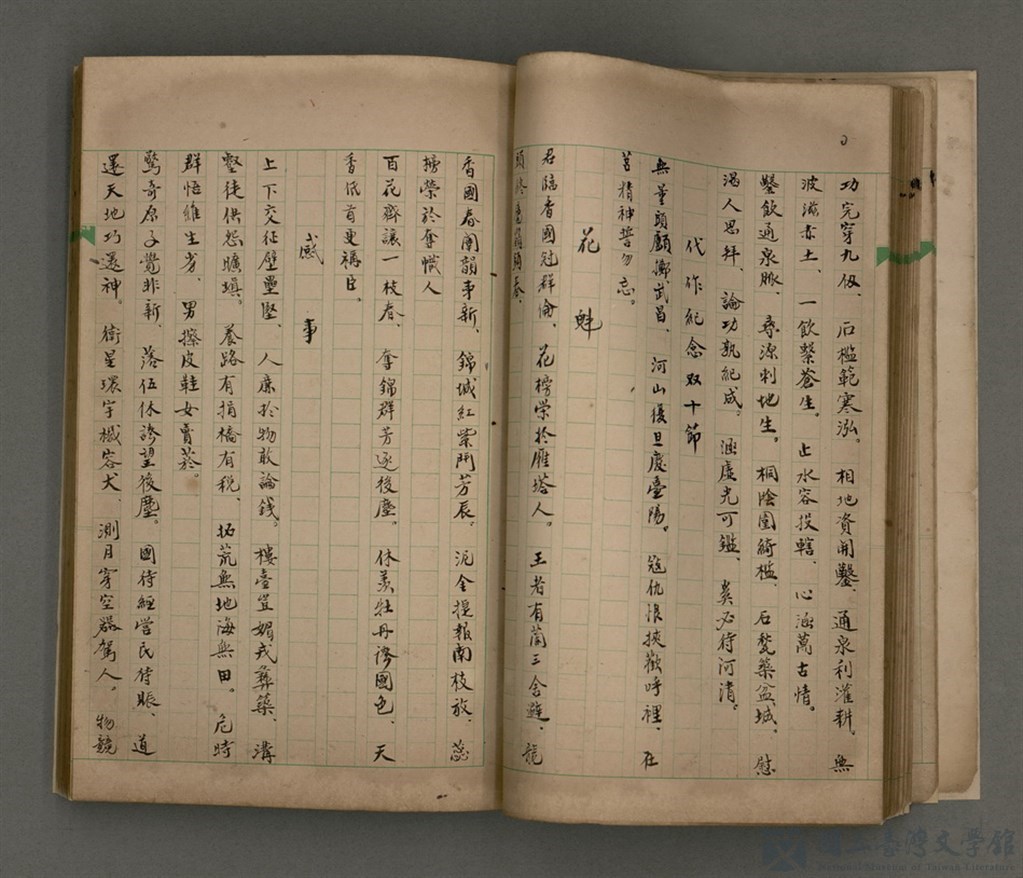 功完穿九仭、石檻範寒泓。相地資開鑿、通泉利灌耕、無
波滋赤土、一飲繫蒼生。止水容投轄、心涵萬古情。
鑿飲通泉脈、尋源刺地生。桐陰圍綺檻、石甃築盆城、慰
渴人思拜、論功孰紀成。涵虛光可鑑、奚必待河清。
代作紀念双十節
無量頭顱擲武昌、河山復旦慶臺陽。寇仇恨挾歡呼裡、在
莒精神誓勿忘。
花魁
君臨香國冠群倫、花榜榮於雁塔人。王者有蘭三舍避、龍
頭
香國春開韻事新、錦城紅紫鬥芳辰、泥金捷報南枝放、蕊
榜榮於奪幟人
百花齊讓一枝春、奪錦群芳逐後塵。休羨牡丹誇國色、天
香低首更稱臣、
感事
上下交征壁壘堅、人廉於物敢論錢。樓臺豈媚戎彝築、溝
壑徒供怨曠填。養路有捐橋有稅、拓荒無地海無田。危時
群悟維生劣、男擦皮鞋女賣菸。
驚奇原子覺非新、落伍休誇望後塵。國待經營民待賑、道
還天地巧還神。衛星環宇檻容犬、測月穿空器駕人。物競
國立臺灣文學館
National Museum of Taiwan Literature